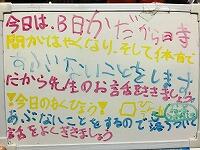 今日は、B日かだから時
間がはやくなり、そして体育で
あぶないことをします。
だから先生のお話聞きましょう
♡今日のおくびょう♡
あぶないことをするので落ちついて
話をよくききましょう